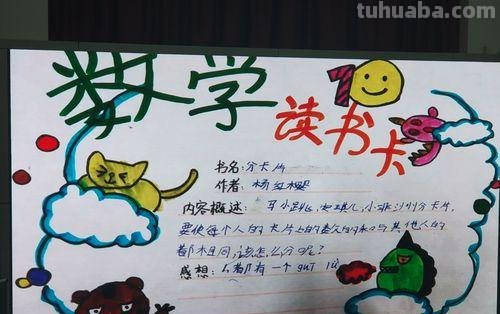 tuhuaba.com
数学
10
读书卡
书名:分卡片
作者:杨红樱
内容概述:马小跳,
要使每个人的卡片上的 和与其他人的
都相同,该怎么分呢?
感想: 都有一个